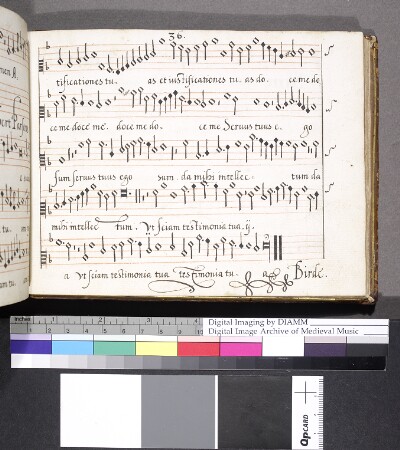 36.
tificationes tu. as et iustificationes tu. as do. ce me de
ce me doce me. doce me do. ce me Seruus tuus e. go
sum seruus tuus ego sum. da mihi intellec. tum da
mihi intellec tum. Vt sciam testimonia tua .ij.
a Vt sciam testimonia tua testimonia tu. a. Birde.
inches 1 2 3
Digital Imaging by DIAMM
Digital Image Archive of Medieval Music
QPCARD